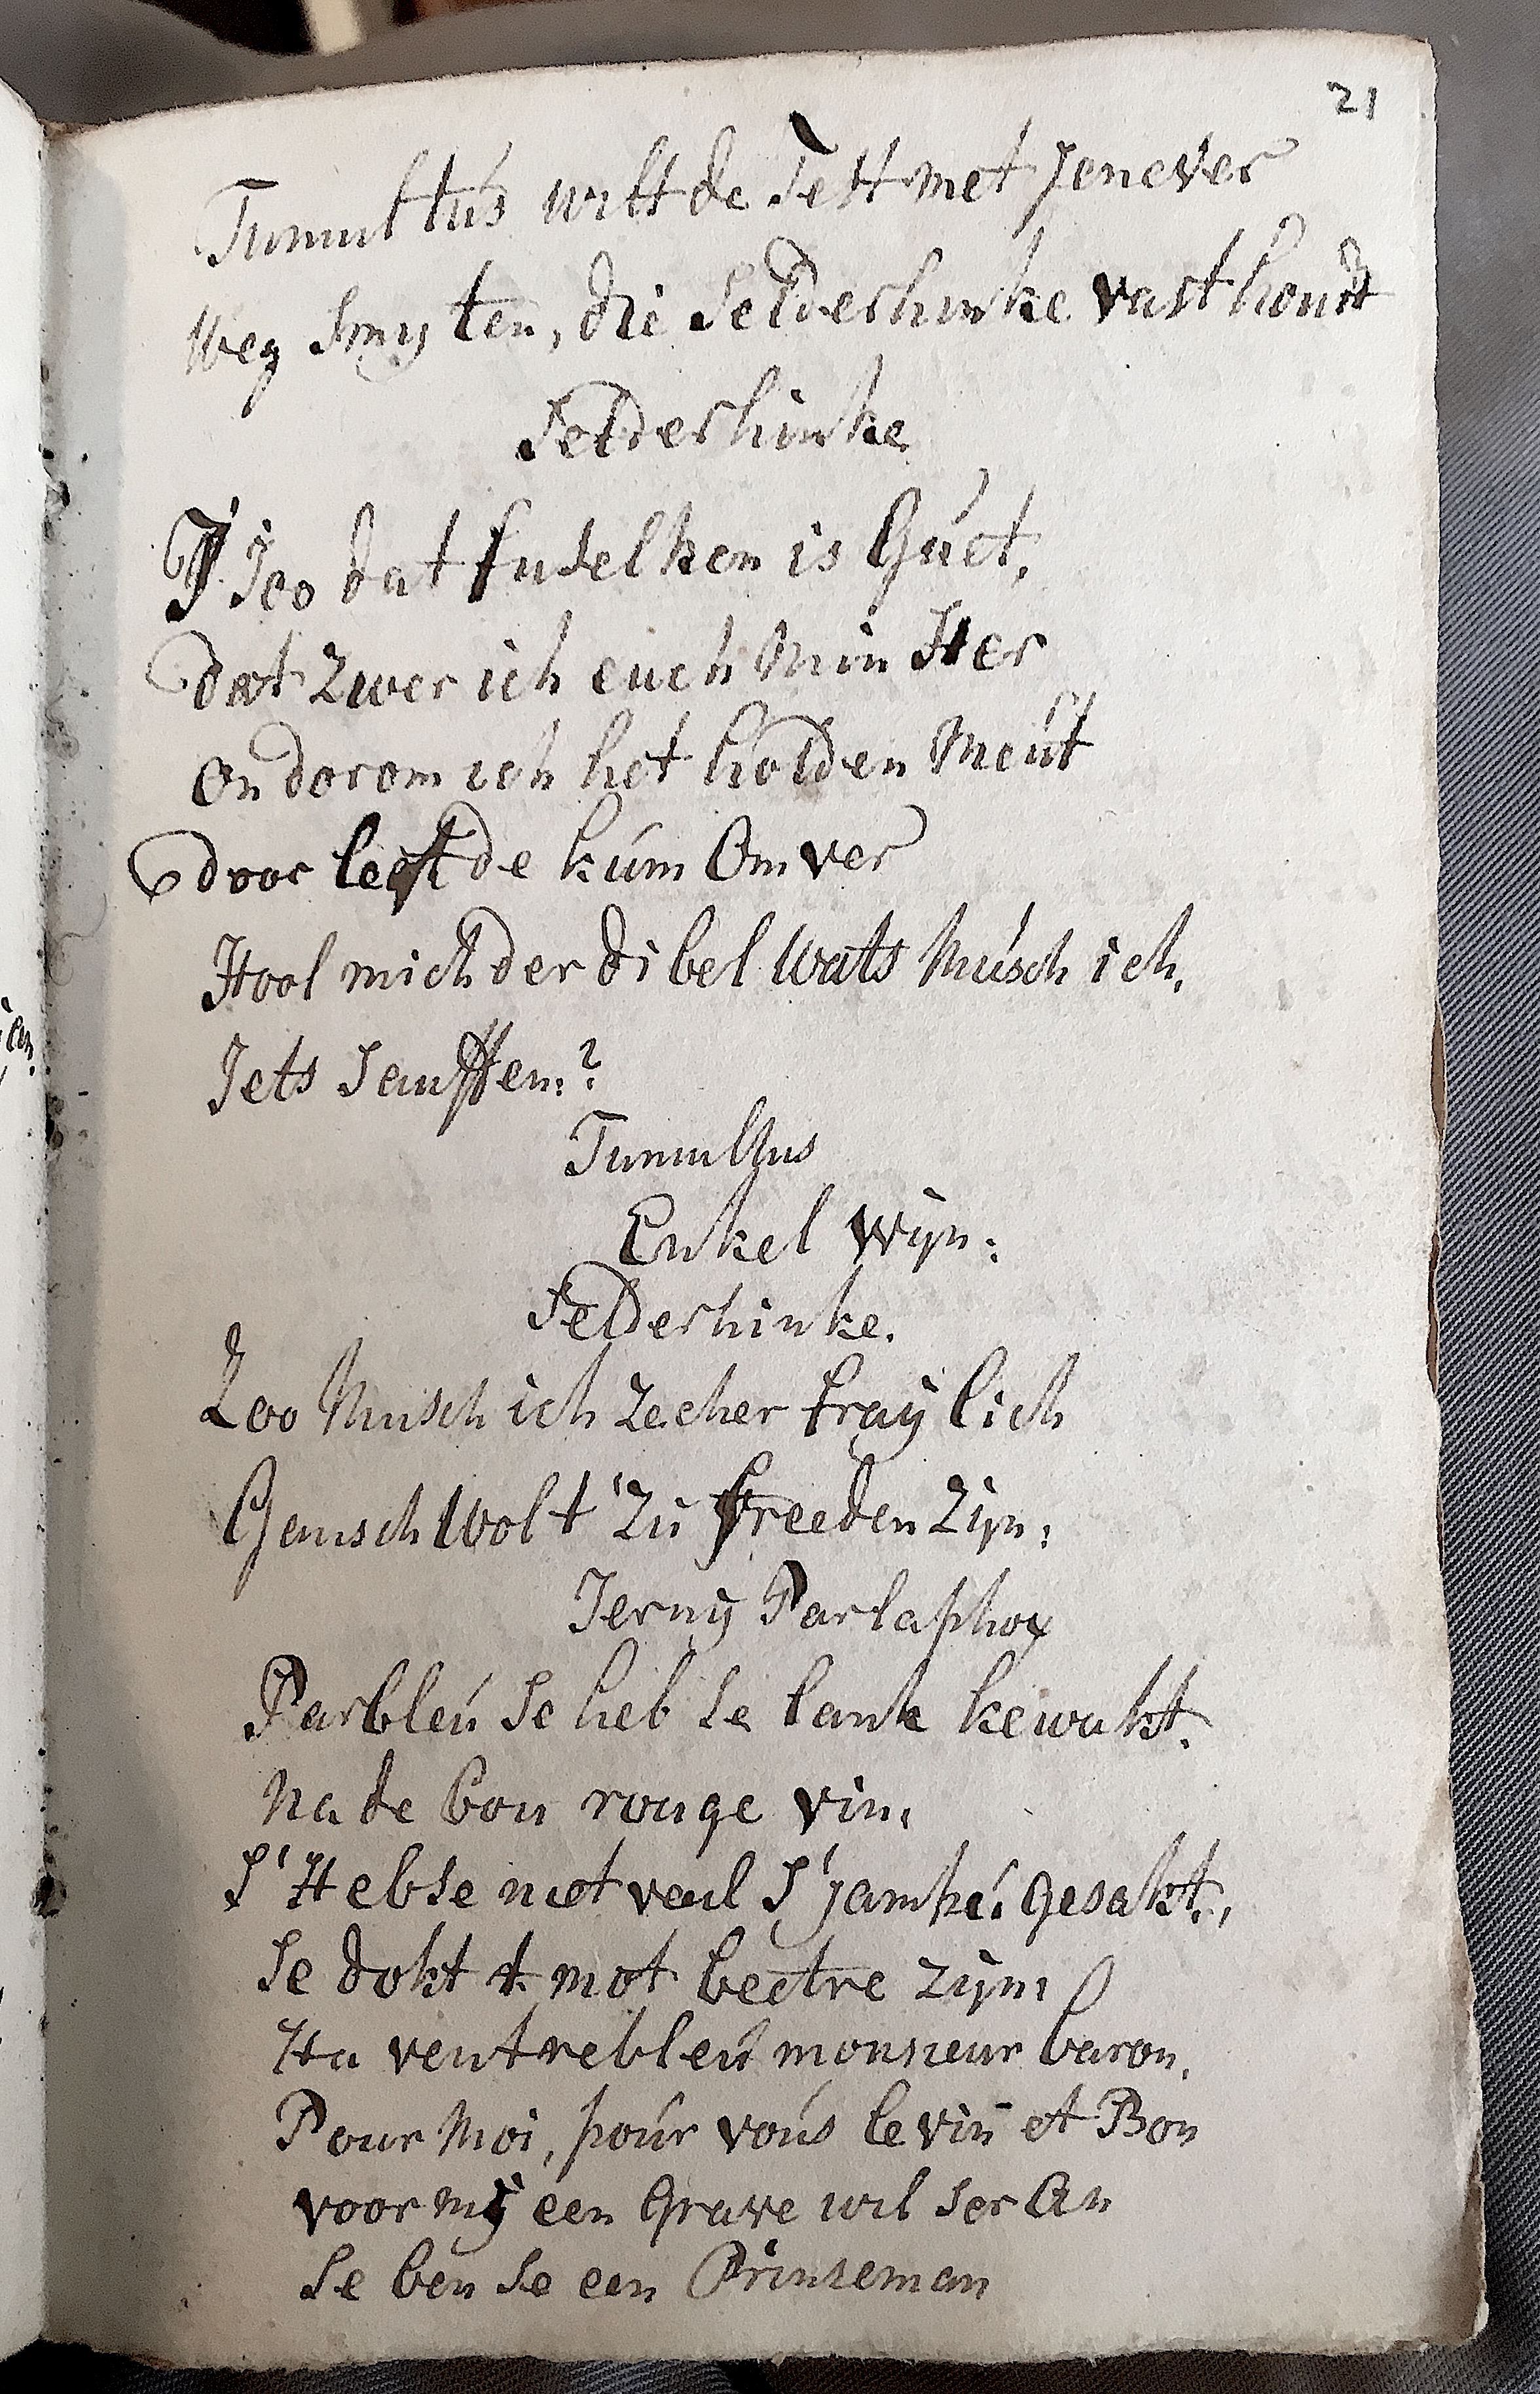 21
Tumultus wilt de Fett met Jenever
weg smyten, die Felderhinke vast houdt
Felderhinke
J Joo dat fuselken is Guet,
dat zwer ich euch Min Her
on dorom ich het holden Meut
door leefde kum Om ver
Hool mich der dibel wats Musch ich,
Jets Sauffen:?
Tumultus
Enkel Wyn:
Felderhinke.
Zoo Musch ich zecher fraylich
Gansch Wol t' zu freeden Zyn:
Jerny Parlaphox
Parbleu Se heb Se lank kewakt.
Na de bon rouge vin,
S'Hebse niet veul S'jamku gesakt,
Se dokt t mot beetre zyn
Ha ventrebleu monsieur baron,
Pour Moi, pour vous le vin et Bon
voor my een Grave wil ser An
Se ben Se een Prinseman